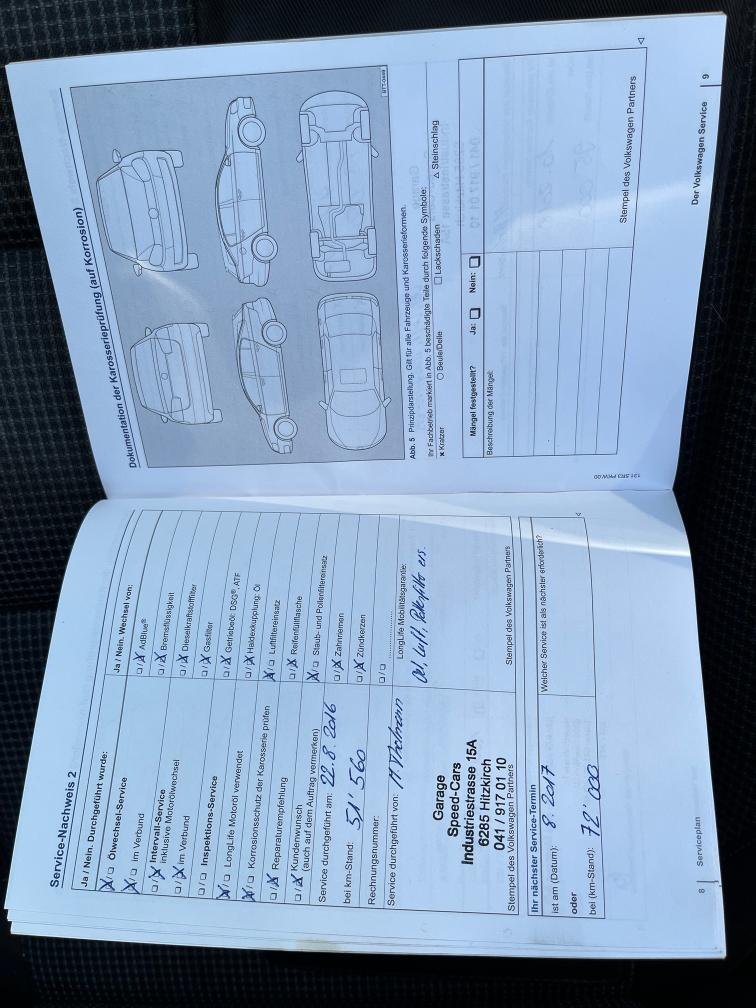 Service-Nachweis 2
Ja / Nein. Durchgeführt wurde:
Ölwechsel-Service
im Verbund
Intervall-Service
inklusive Motorölwechsel
im Verbund
Inspektions-Service
LongLife Motoröl verwendet
Korrosionsschutz der Karosserie prüfen
Reparaturempfehlung
Kundenwunsch
(auch auf dem Auftrag vermerken)
Service durchgeführt am: 22.8.2016
bei km-Stand: 51'560
Rechnungsnummer:
Service durchgeführt von:
Garage
Speed-Cars
Industriestrasse 15A
6285 Hitzkirch
041 / 917 01 10
Stempel des Volkswagen Partners
Ja / Nein. Wechsel von:
AdBlue®
Bremsflüssigkeit
Dieselkraftstofffilter
Gasfilter
Getriebeöl: DSG® ATF
Haldexkupplung: Öl
Luftfiltereinsatz
Reifenfüllflasche
Staub- und Pollenfiltereinsatz
Zahnriemen
Zündkerzen
LongLife Mobilitätsgarantie:
Oel, Luft, Pollenfilter ers.
Stempel des Volkswagen Partners
Ihr nächster Service-Termin
ist am (Datum): 8.2017
oder
bei (km-Stand): 72'000
Welcher Service ist als nächster erforderlich?
8 Serviceplan
Dokumentation der Karosserieprüfung (auf Korrosion)
Abb. 5 Prinzipdarstellung. Gilt für alle Fahrzeuge und Karosserieformen.
Ihr Fachbetrieb markiert in Abb. 5 beschädigte Teile durch folgende Symbole:
× Kratzer ○ Beule/Delle □ Lackschaden △ Steinschlag
Mängel festgestellt? Ja: Nein:
Beschreibung der Mängel:
Stempel des Volkswagen Partners
131.5R3.PKW.00
Der Volkswagen Service 9